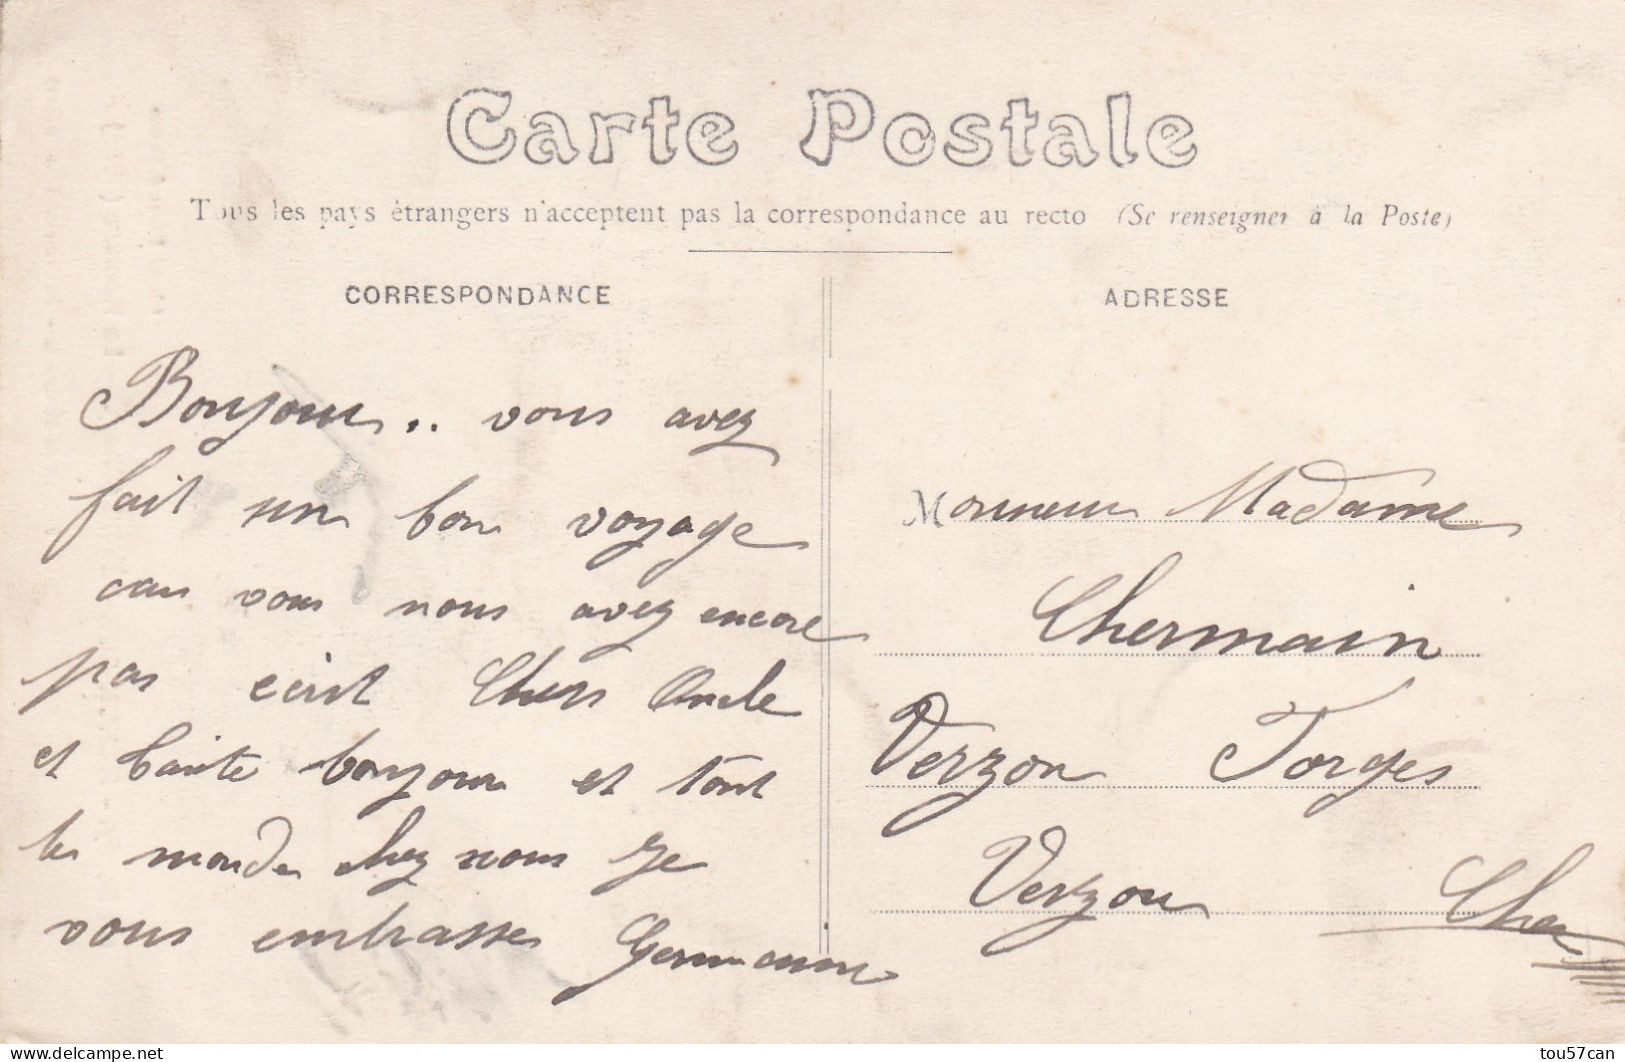 Carte Postale
Tous les pays étrangers n'acceptent pas la correspondance au recto (Se renseigner à la Poste)
CORRESPONDANCE
ADRESSE
Bonjour.. vous avez
fait un bon voyage
car vous nous avez encore
pas ecrit Chers Oncle
et tante bonjour et tout
le monde chez nous Je
vous embrasse Germaine
Monsieur Madame
Chermain
Verzon Forges
Verzon Cher
tou57can